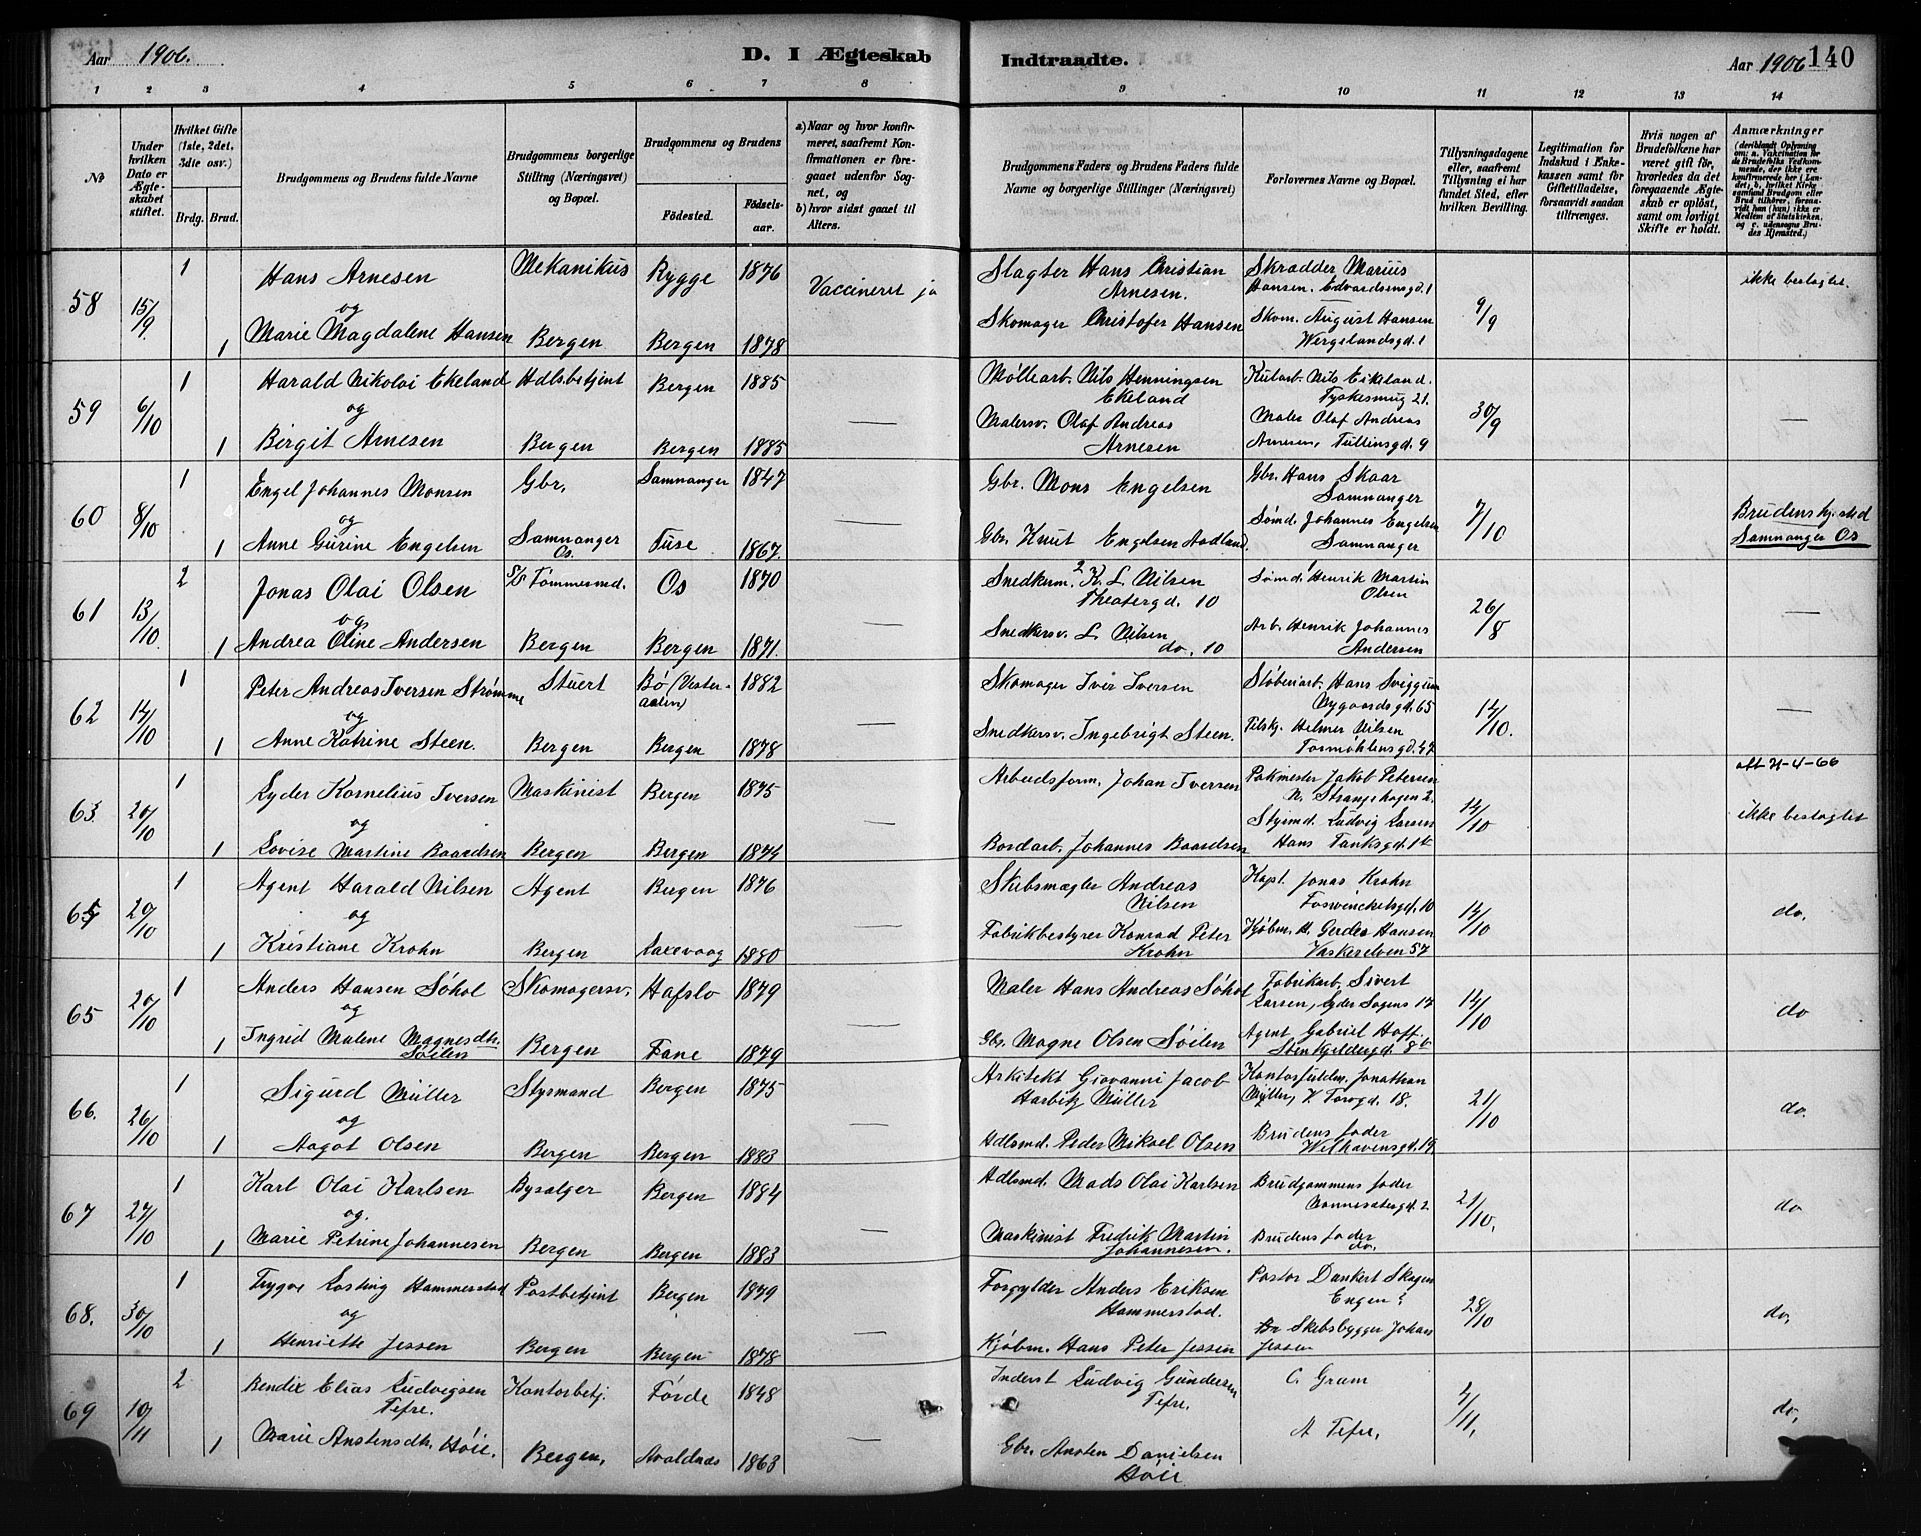 Aar 1906.
D. I Ægteskab Indtraadte.
Aar 1906 140
1 2 3 4 5 6 7 8 9 10 11 12 13 14
No
Under hvilken Dato er Ægteskabet stiftet.
Hvilket Gifte (1ste, 2det, 3die osv.)
Brdg. Brud.
Brudgommens og Brudens fulde Navne
Brudgommens borgerlige Stilling (Næringsvei) og Bopæl.
Brudgommens og Brudens
Fødested. Fødselsaar.
a) Naar og hvor konfirmeret, saafremt Konfirmationen er foregaaet udenfor Sognet, og
b) hvor sidst gaaet til Alters.
Brudgommens Faders og Brudens Faders fulde Navne og borgerlige Stillinger (Næringsvei)
Forlovernes Navne og Bopæl.
Tillysningsdagene eller, saafremt Tillysning ei har fundet Sted, efter hvilken Bevilling.
Legitimation for Indskud i Enkekassen samt for Giftetilladelse, forsaavidt saadan tiltrænges.
Hvis nogen af Brudefolkene har været gift før, hvorledes da det foregaaende Ægteskab er opløst, samt om lovligt Skifte er holdt.
Anmærkninger (deriblandt Oplysning om: a. Vakcination for de Brudefolks Vedkommende, der ikke ere konfirmerede her i Landet; b. hvilket Kirkesamfund Brudgom eller Brud tilhører, forsaavidt han (hun) ikke er Medlem af Statskirken, og c. udensogns Brudes Hjemsted.)
58 15/9 1 Hans Arnesen Mekanikus Rygge 1876 Vaccineret ja Slagter Hans Christian Arnesen. Skrædder Marius Hansen. Edvardsensgd. 1 9/9 ikke bestaglet.
og
1 Marie Magdalene Hansen Bergen Bergen 1878 Skomager Christofer Hansen Skom. August Hansen Wergelandsgd. 1
59 6/10 1 Harald Nikolai Ekeland Hdlsbetjent Bergen 1885 — Møllearb. Nils Henningsen Ekeland Kularb. Nils Eikeland. Tyskesmug 21. 30/9 —
og
1 Birgit Arnesen Bergen Bergen 1885 Malersv. Olaf Andreas Arnesen Maler Olaf Andreas Arnesen, Tullinsgd. 9
60 8/10 1 Engel Johannes Monsen Gbr. Samnanger 1847 — Gbr. Mons Engelsen Gbr. Hans Skaar Samnanger 7/10 Brudens hj.sted Samnanger Os
og
1 Anne Gurine Engelsen Samnanger Os. Fuse 1867. Gbr. Knut Engelsen Aadland. Sømd. Johannes Engelsen Samnanger
61 13/10. 2 Jonas Olai Olsen Tømmermd. Os 1870 — Snedkerm. K. L. Nilsen Theatergd. 10 Sømd. Henrik Martin Olsen 26/8 —
og
1 Andrea Oline Andersen Bergen Bergen 1871. Snedkersv. L. Nilsen do. 10 Arb. Henrik Johannes Andersen
62 14/10 1 Peter Andreas Iversen Strømme Stuert Bö (Vesteraalen) 1882 — Skomager Iver Iversen Støberiarb. Hans Sviggum Nygaardsgd. 65 14/10. —
og
1 Anne Katrine Steen. Bergen Bergen 1878 Snedkersv. Ingebrigt Steen. Helmer Nilsen Tormøhlensgd. 42
63. 20/10 1 Lyder Kornelius Iversen Maskinist Bergen 1875 Arbeidsform. Johan Iversen Pakmester Jakob Petersen N. Strangehagen 2. 14/10 4-66 ikke bestaglet
og
1 Lovise Martine Baardsen Bergen Bergen 1874 Bordarb. Johannes Baardsen Styrmd. Ludvig Larsen Hans Tanksgd.
20/10 1 Agent Harald Nilsen Agent Bergen 1876 — Skibsmægler Andreas Nilsen Kapt. Jonas Krohn Fosvinckelsgd. 10 14/10 do.
og
1 Kristiane Krohn Bergen Laxevaag 1880 Fabrikbestyrer Konrad Peter Krohn Kjøbm. H. Gerdes Hansen Vaskerelven 57
65 20/10 1 Anders Hansen Søhol Skomagersv. Hafslo 1879 — Maler Hans Andreas Søhol Fabrikarb. Sivert Larsen, Lyder Sagens 17 14/10 do
og
1 Ingrid Malene Magnesdtr. Søilen Bergen Fane 1879 Gbr. Magne Olsen Søilen Agent Gabriel Hoff. Stenkjeldergd. 8b
66. 26/10 1 Sigurd Müller Styrmand Bergen 1875 — Arkitekt Giovanni Jacob Harbitz Müller Kontorfuldm. Jonathan Müller, V. Torvgd. 18. 21/10 do.
og
1 Aagot Olsen Bergen Bergen 1883 Hdlsmd. Peder Mikael Olsen Brudens fader Welhavensgd. 19
67 27/10 1 Karl Olai Karlsen Bysælger Bergen 1884 — Hdlsmd. Mads Olai Karlsen Brudgommens fader Nonnesætergd. 2 21/10. do
og.
1 Marie Petrine Johannesen Bergen Bergen 1883 Maskinist Fredrik Martin Johannesen. Brudens fader do.
68. 30/10 1 Trygve Lasting Hammerstad Postbetjent Bergen 1879 — Forgylder Anders Eriksen Hammerstad. Pastor Dankert Skagen Engen 28/10 do.
og
1 Henriette Jessen Bergen Bergen 1878 Kjøbm. Hans Peter Jessen Skibsbygger Johan Jessen
69 10/11 2 Bendix Elias Ludvigsen Tefre. Kontorbetj. Førde 1848 — Inderst Ludvig Gundersen Tefre, C. Gram 4/11. do,
1 Marie Anstensdtr. Høie. Bergen, Avaldnæs 1863 Gbr. Ansten Danielsen Høie A Tefre,